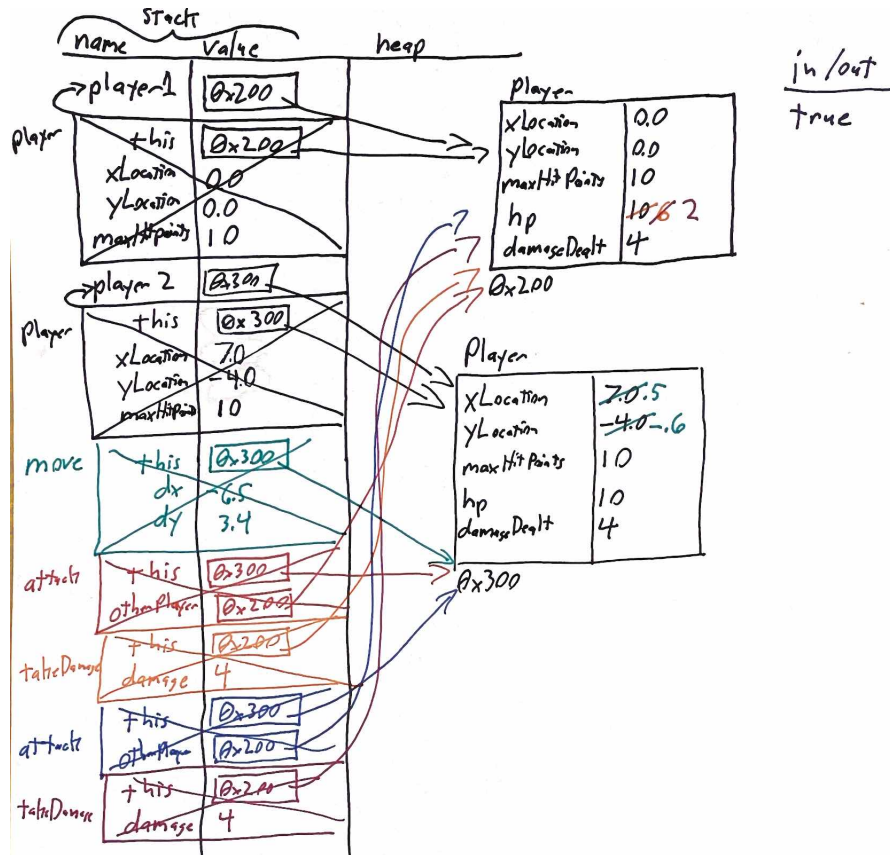 stack
name value heap
in/out
true
player1 0x200
player
this 0x200
xLocation 0.0
yLocation 0.0
maxHitPoints 10
player 2 0x300
player
this 0x300
xLocation 7.0
yLocation -4.0
maxHitPoints 10
move
this 0x300
dx -6.5
dy 3.4
attack
this 0x300
otherPlayer 0x200
takeDamage
this 0x200
damage 4
attack
this 0x300
otherPlayer 0x200
takeDamage
this 0x200
damage 4
player
xLocation 0.0
yLocation 0.0
maxHitPoints 10
hp 10 6 2
damageDealt 4
0x200
Player
xLocation 7.0 .5
yLocation -4.0 -.6
maxHitPoints 10
hp 10
damageDealt 4
0x300